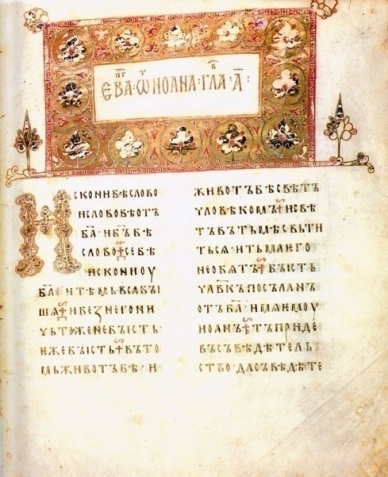 ЕВА·Ѿ ИОАНА·ГЛА·А҃:
ИСКОНИ БѢ СЛОВО
И СЛОВО БѢ ОТЪ
БА҃ И БЪ҃ БѢ
СЛОВО СЕ БѢ
ИСКОНИ ОУ
БА҃ И ТѢМЬ ВЬСА БЫ
ШѦ И БЕЖНЕГО НИ
ЧЬТОЖЕ НЕ БЫСТЬ
ЕЖЕ БЫСТЬ ВЪ ТО
МЬ ЖИВОТЪ БѢ И
ЖИВОТЪ БѢ СВѢТЪ
ЧЛОВѢКОМЪ И СВѢ
ТЪ ВЪ ТЬМѢ СВЬТИ
ТЬСѦ И ТЬМА ѤГО
НЕ ОБѦТЪ БЫСТЬ
ЧЛВ҃КЪ ПОСЪЛАНЪ
ОТЪ БА҃ ИМѦ ЕМОУ
ИОАНЪ ТЪ ПРИДЕ
ВЪ СЪВѢДѢТЕЛЬ
СТВО ДА СЪВѢДѢТЕ